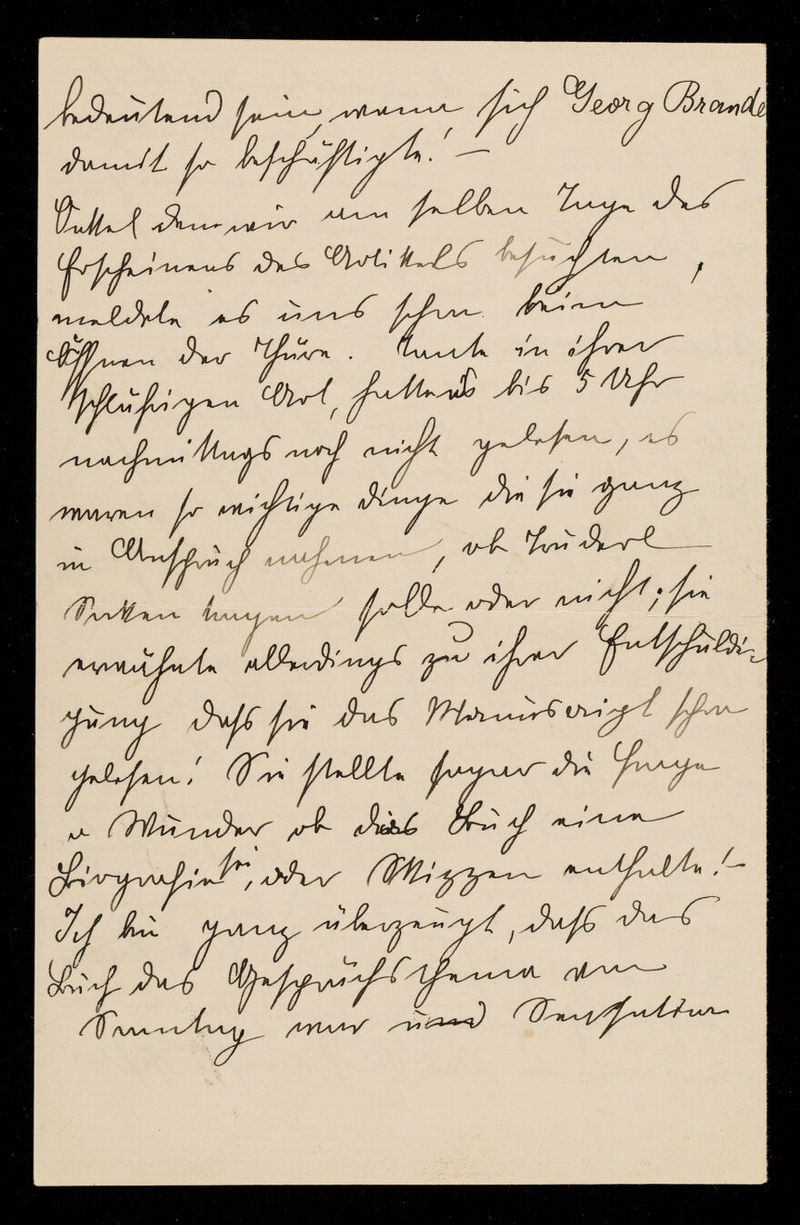 bedeutend sein, wenn sich Georg Brande
damit so beschäftigte! –
Onkel den wir am selben Tage des
Erscheinens des Artikels besuchten,
meldete es uns schon beim
Öffnen der Thüre. Tante in ihrer
schluſrigen Art, hatte es bis 5 Uhr
nachmittags noch nicht gelesen, es
waren so wichtige dinge die sie ganz
in Anspruch nahmen, ob Truderl
Socken tragen solle oder nicht; sie
erwähnte allerdings zu ihrer Entschuldi=
gung dass sie das Manuscript schon
gelesen! Sie stellte sogar die Frage
o Wunder ob dies Buch eine
Biografie sei, oder Skizzen enthalte! –
Ich bin ganz überzeugt, dass das
Buch das Gesprächsthema am
Sonntag war und Sensation